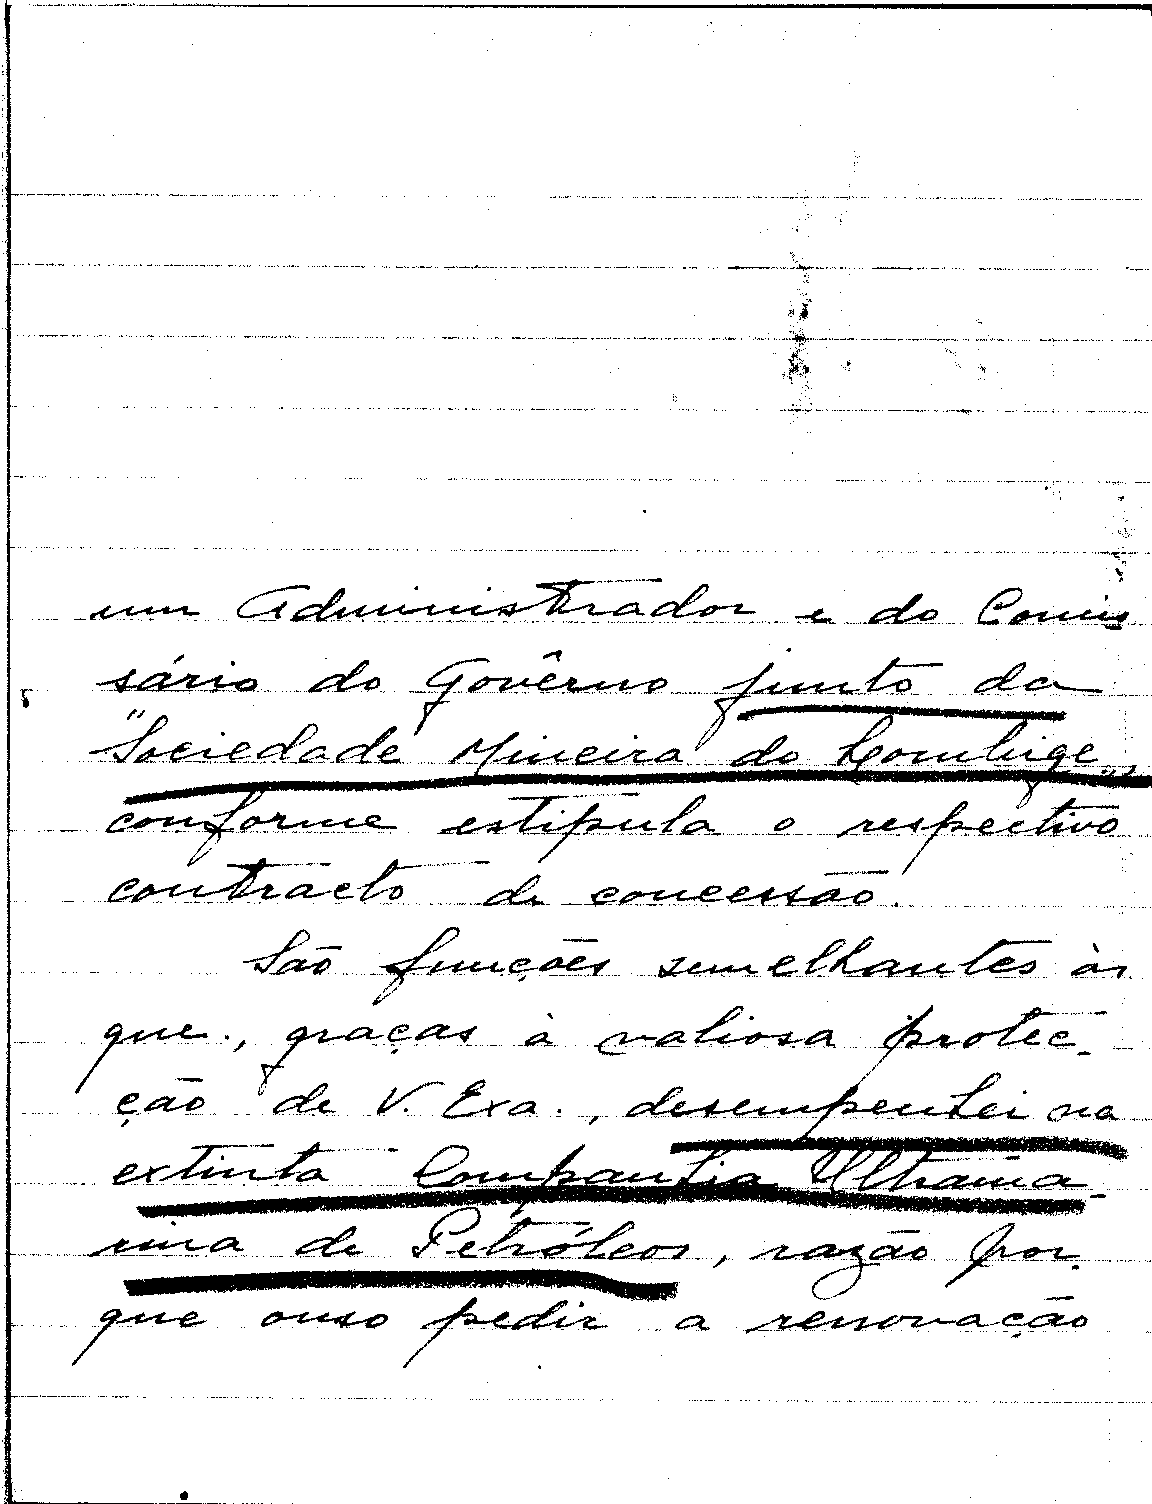 um Administrador e do Comis-
sário do Govêrno junto da
"Sociedade Mineira do Lombige",
conforme estipula o respectivo
contracto de concessão.
São funções semelhantes às
que, graças à valiosa protec-
ção de V. Exa., desempenhei na
extinta Companhia Ultrama-
rina de Petróleos, razão por-
que ouso pedir a renovação